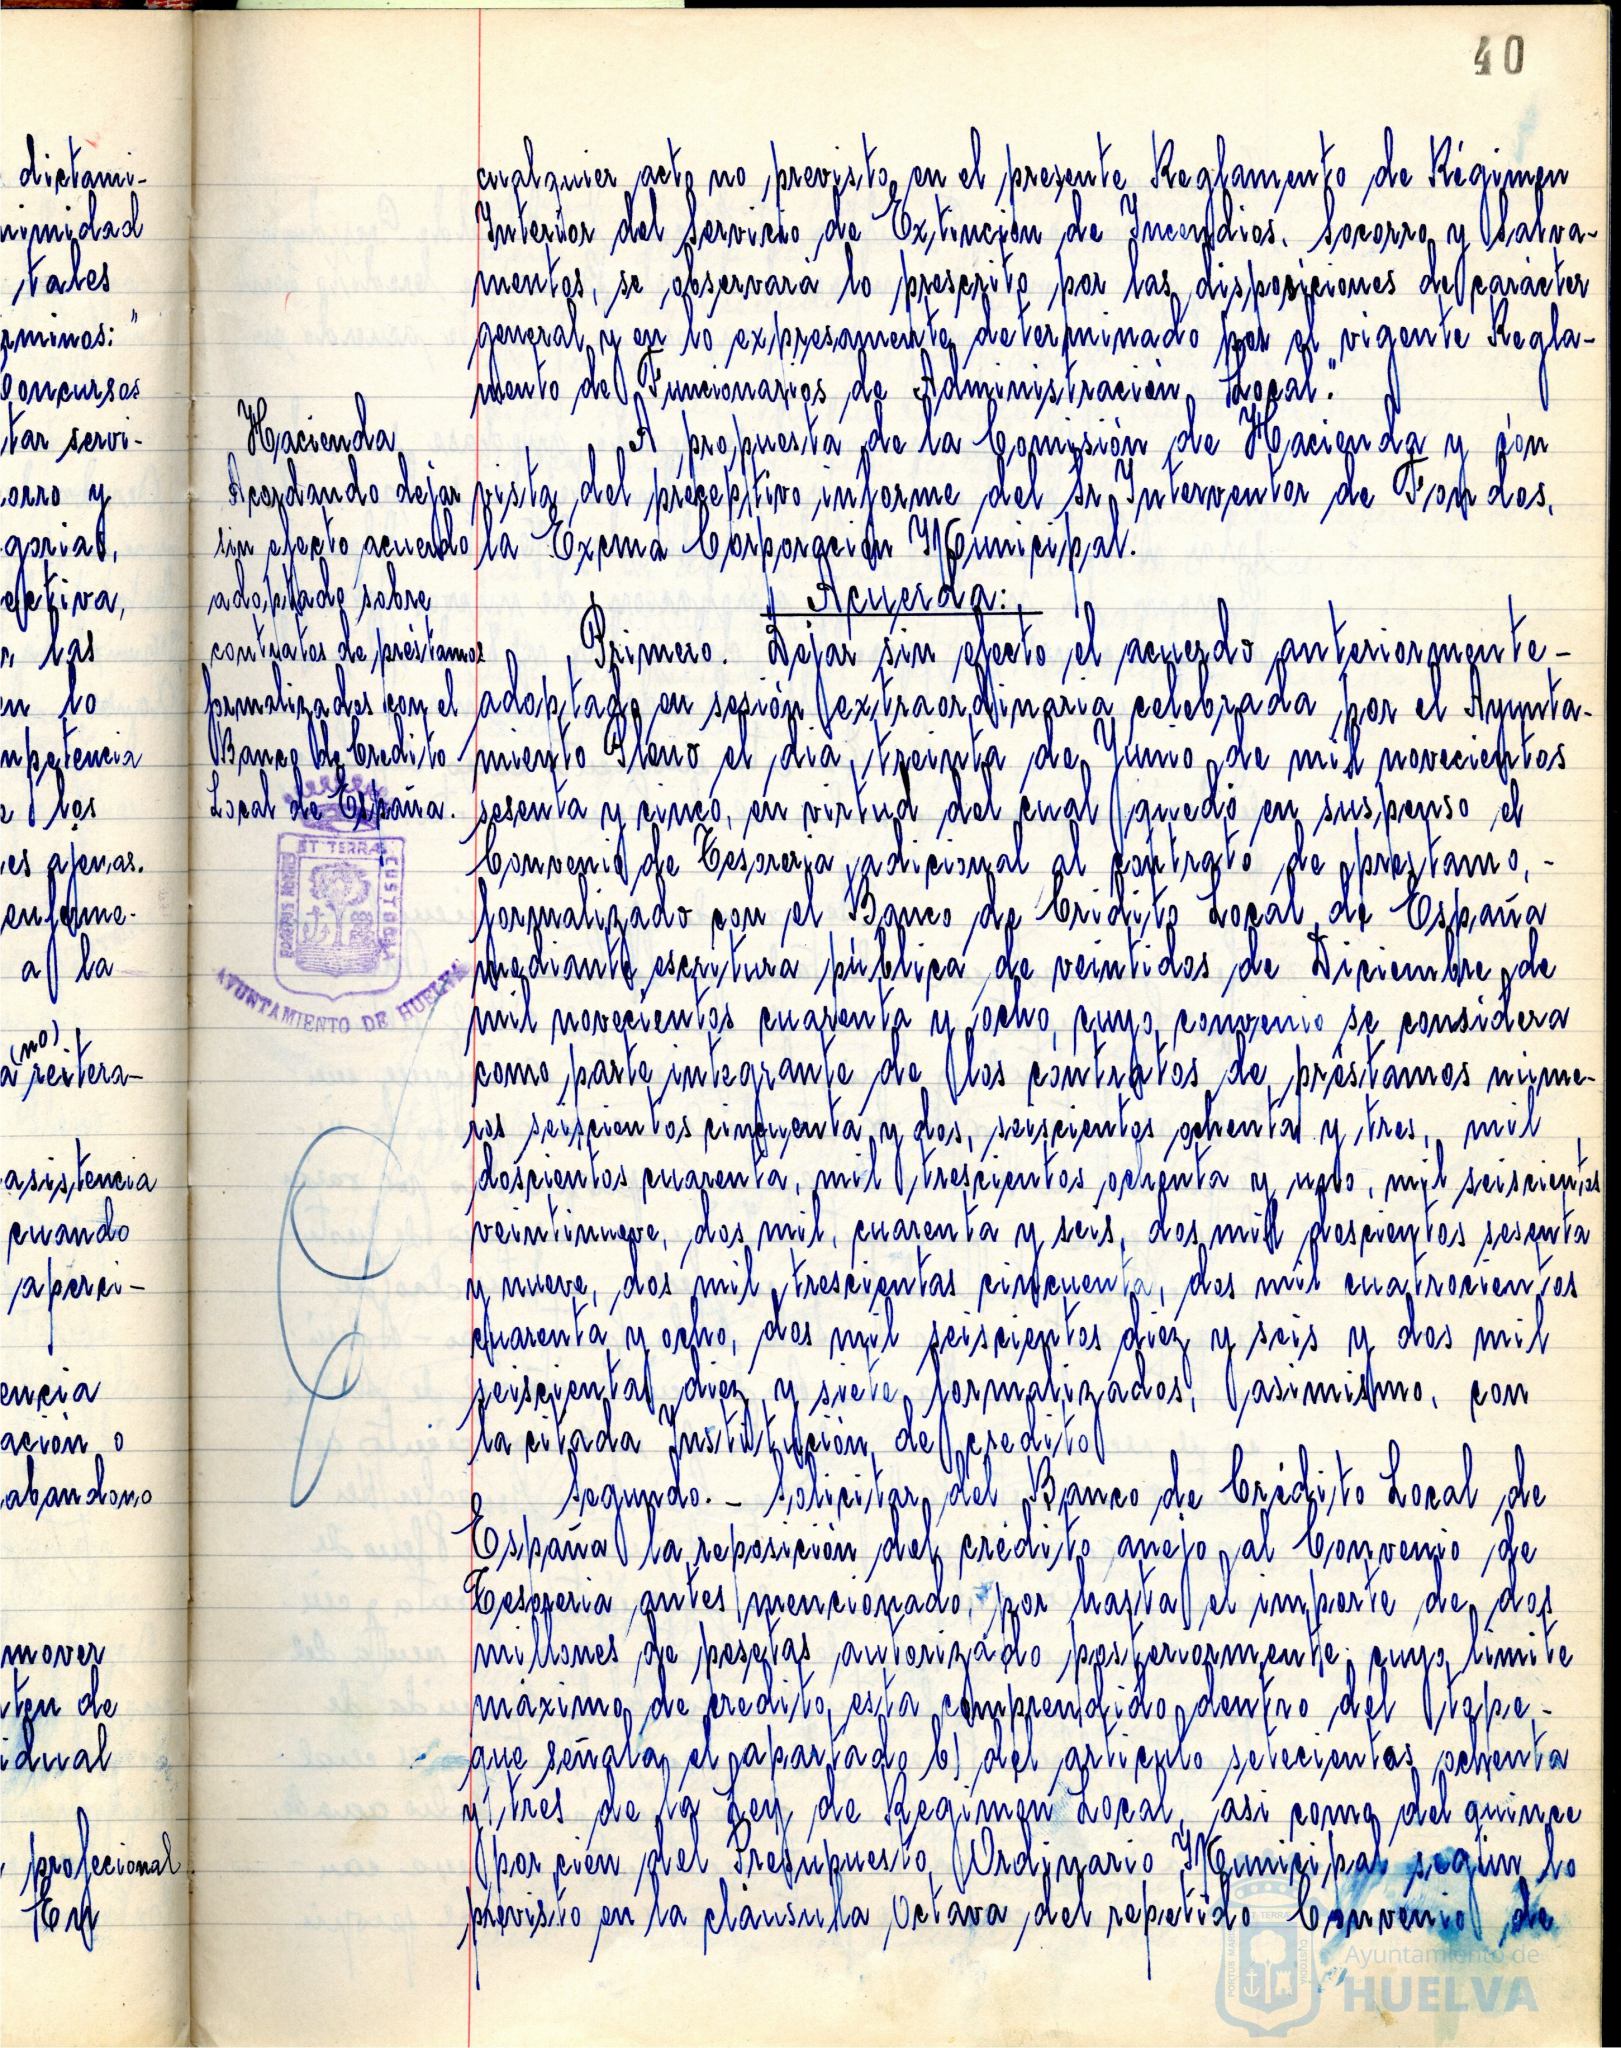 40
dictami-
nimidad
tales
rminos:"
Concursos
tar servi-
orro y
goria,
efectiva,
las
en lo
mpetencia
los
es ajenas.
enferme-
a la
(no)
a reitera-
asistencia
cuando
aperci-
encia
ación o
abandono
mover
ten de
idual
profecional
En
Hacienda
Acordando dejar
sin efecto acuerdo
adoptado sobre
contratos de préstamos
formalizados con el
Banco de Credito
Local de España.
PORTUS MARIS ET TERRAE CUSTODIA
AYUNTAMIENTO DE HUELVA
cualquier acto no previsto en el presente Reglamento de Régimen
Interior del Servicio de Extinción de Incendios, Socorro y Salva-
mentos, se observará lo prescrito por las disposiciones de carácter
general y en lo expresamente determinado por el vigente Regla-
mento de Funcionarios de Administración Local".
A propuesta de la Comisión de Hacienda y con
vista del preceptivo informe del Sr. Interventor de Fondos,
la Excma Corporación Municipal.
Acuerda:
Primero. Dejar sin efecto el acuerdo anteriormente-
adoptado en sesión extraordinaria celebrada por el Ayunta-
miento Pleno el dia treinta de Junio de mil novecientos
sesenta y cinco, en virtud del cual quedó en suspenso el
Convenio de Tesoreria adicional al contrato de prestamo,-
formalizado con el Banco de Crédito Local de España
mediante escritura pública de veintidos de Diciembre de
mil novecientos cuarenta y ocho, cuyo convenio se considera
como parte integrante de los contratos de préstamos núme-
ros seiscientos cincuenta y dos, seiscientos ochenta y tres, mil
doscientos cuarenta, mil trescientos ochenta y uno, mil seiscientos
veintinueve, dos mil cuarenta y seis, dos mil doscientos sesenta
y nueve, dos mil trescientas cincuenta, dos mil cuatrocientos
cuarenta y ocho, dos mil seiscientos diez y seis y dos mil
seiscienta diez y siete formalizados, asimismo, con
la citada Institución de credito
Segundo.- Solicitar del Banco de Crédito Local de
España la reposición del crédito anejo al Convenio de
Tesoreria antes mencionado, por hasta el importe de dos
millones de pesetas autorizado posteriormente, cuyo límite
máximo de credito esta comprendido dentro del tope-
que señala el apartado b) del articulo setecientos ochenta
y tres de la Ley de Regimen Local, asi como del quince
por cien del Presupuesto Ordinario Municipal según lo
previsto en la cláusula Octava del repetido Convenio de
Ayuntamiento de
HUELVA